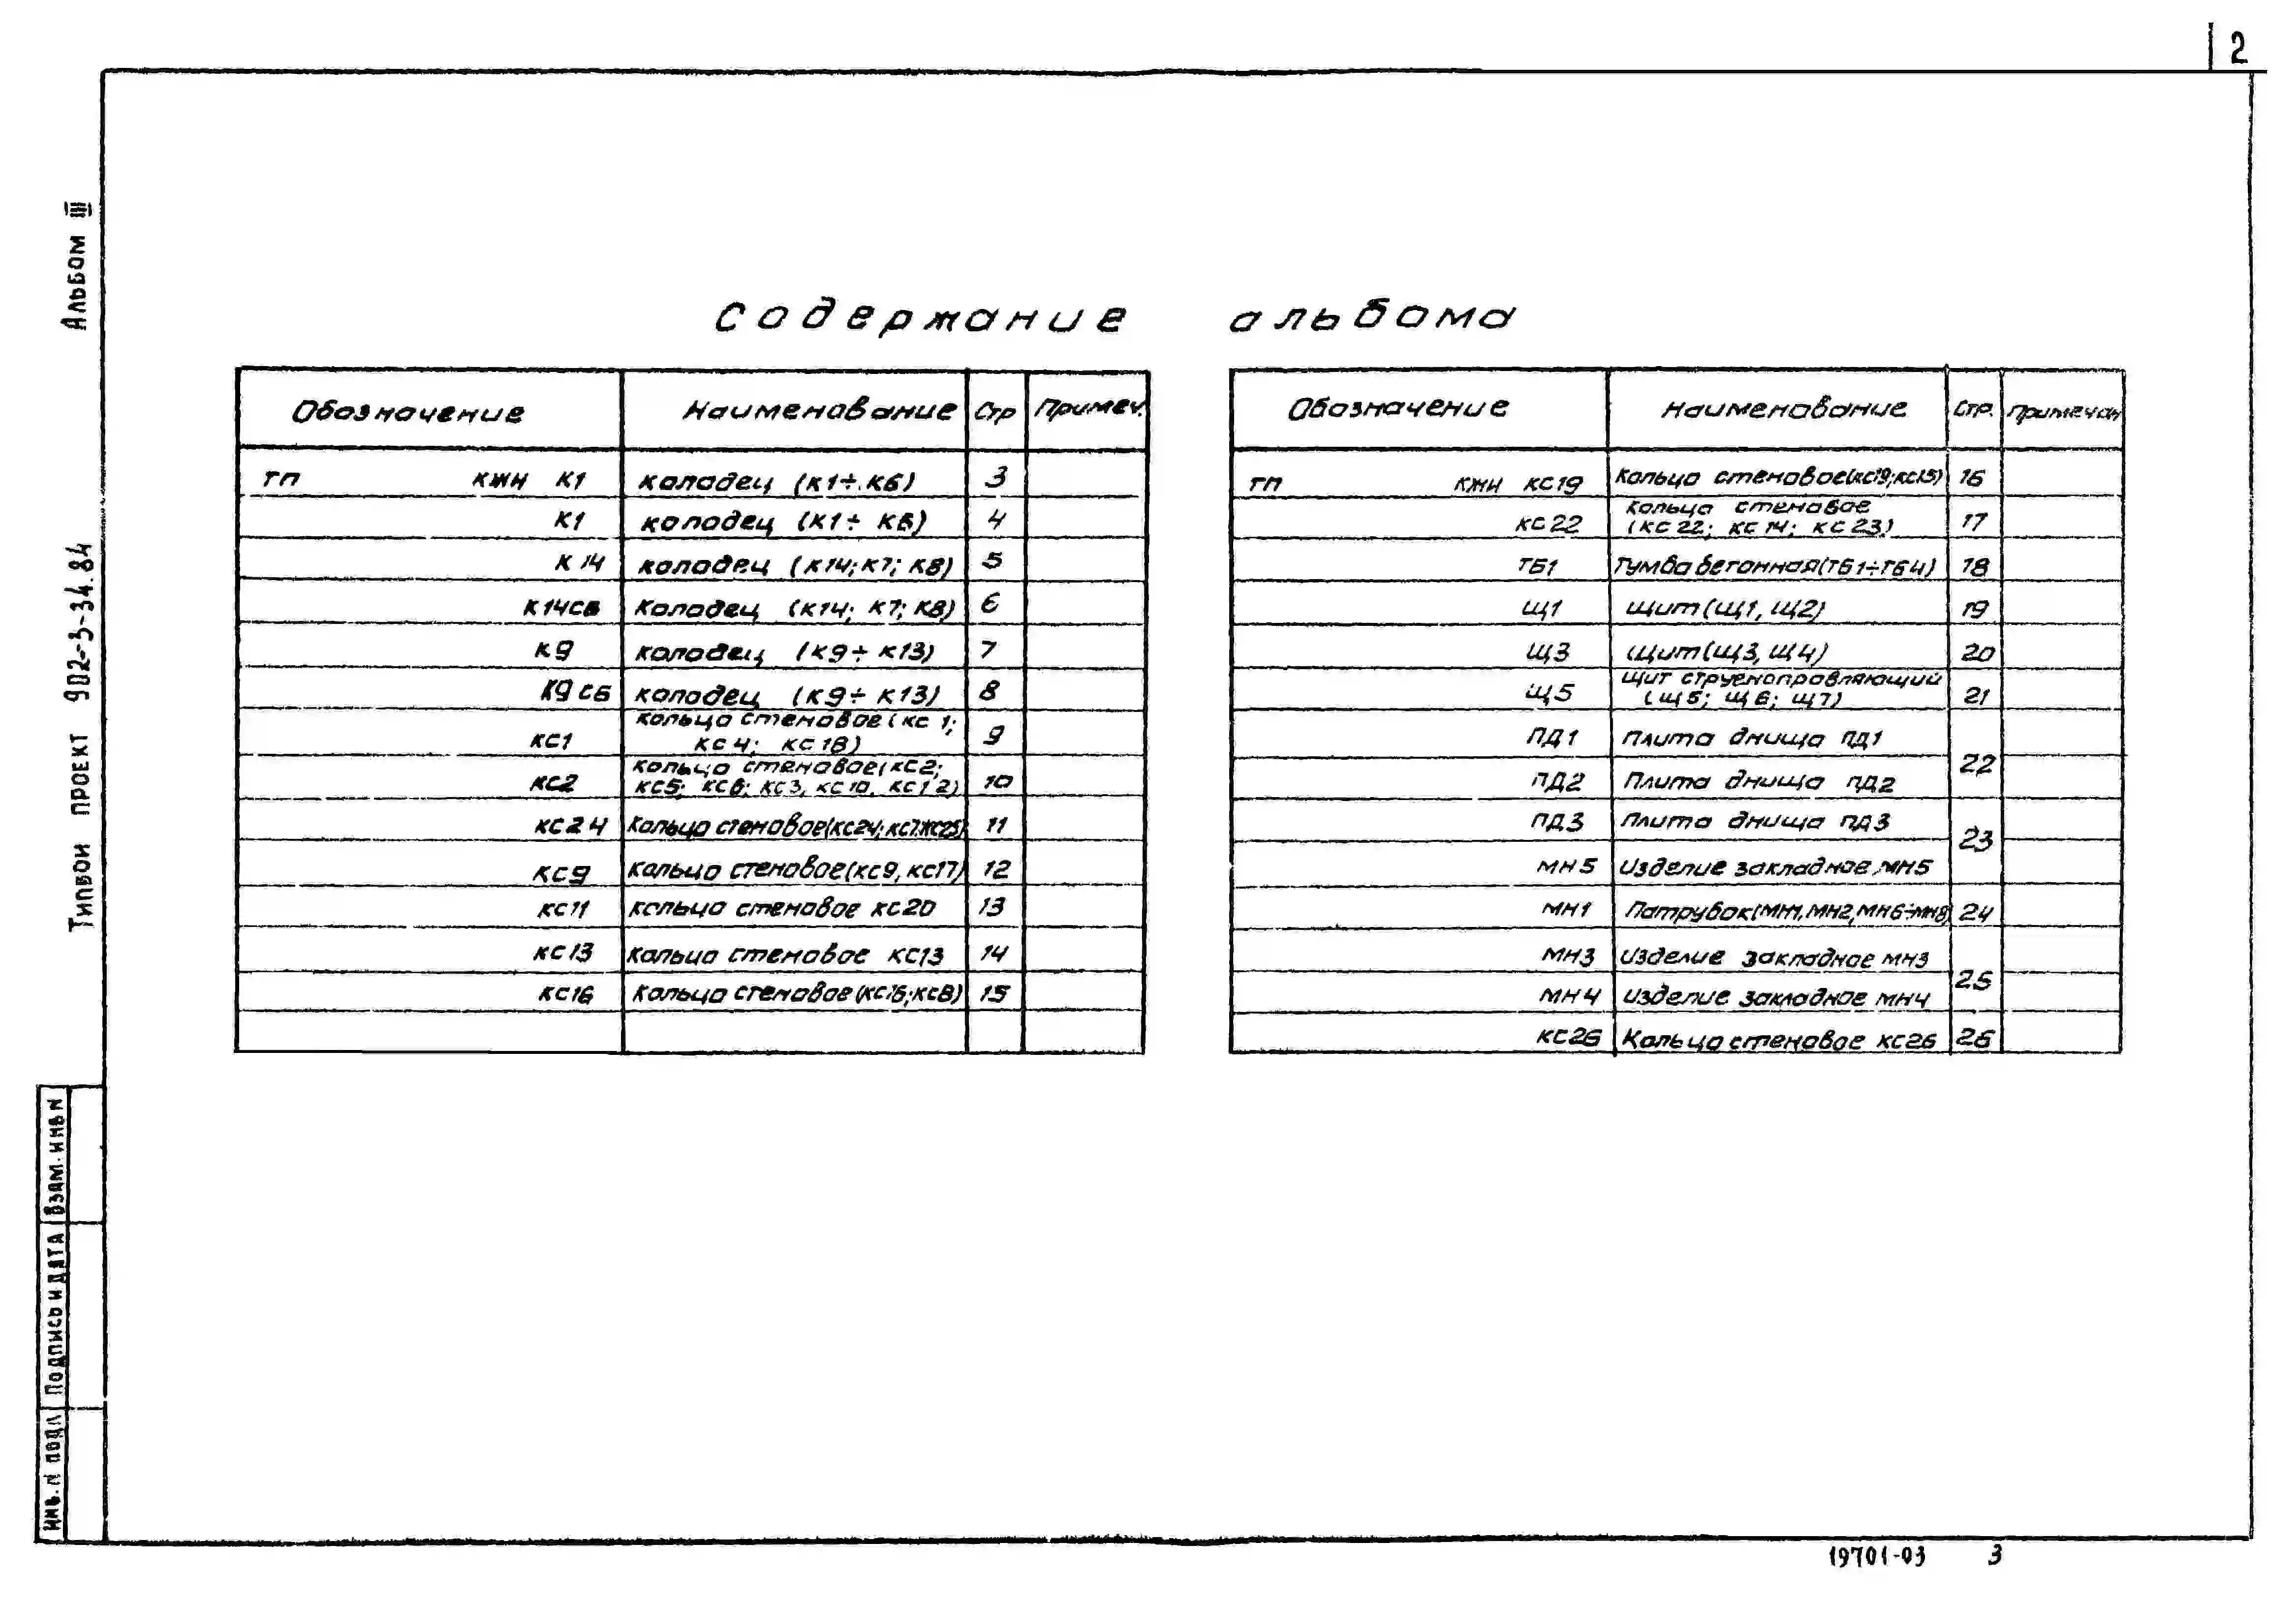 2
Альбом III
Типвой проект 902-3-34.84
Содержание альбома
Обозначение Наименование Стр Примеч.
ТП КЖН К1 колодец (К1÷К6) 3
К1 колодец (К1÷ К6) 4
К14 колодец (К14; К7; К8) 5
К14СБ Колодец (К14; К7; К8) 6
К9 колодец (К9÷ К13) 7
К9СБ колодец (К9÷ К13) 8
КС1 Кольцо стеновое (КС 1;
КС 4; КС 18) 9
КС2 Кольцо стеновое (КС2;
КС5; КС6; КС3, КС10, КС12) 10
КС24 Кольцо стеновое (КС24; КС7; КС25) 11
КС9 Кольцо стеновое (КС9, КС17) 12
КС11 кольцо стеновое КС20 13
КС13 Кольцо стеновое КС13 14
КС16 Кольцо стеновое (КС16; КС8) 15
Обозначение Наименование Стр. Примечан
ТП КЖН КС19 Кольцо стеновое (КС19; КС15) 16
КС22 Кольцо стеновое
(КС 22; КС 14; КС 23) 17
ТБ1 Тумба бетонная (ТБ1÷ТБ4) 18
Щ1 Щит (Щ1, Щ2) 19
Щ3 Щит (Щ3, Щ4) 20
Щ5 Щит струенаправляющий
(Щ5; Щ6; Щ7) 21
ПД1 Плита днища ПД1
22
ПД2 Плита днища ПД2
ПД3 Плита днища ПД3
23
МН5 Изделие закладное МН5
МН1 Патрубок (МН1, МН2, МН6÷МН8) 24
МН3 Изделие закладное МН3
25
МН4 Изделие закладное МН4
КС26 Кольцо стеновое КС26 26
Инв. N подл Подпись и дата Взам. инв N
19701-03 3